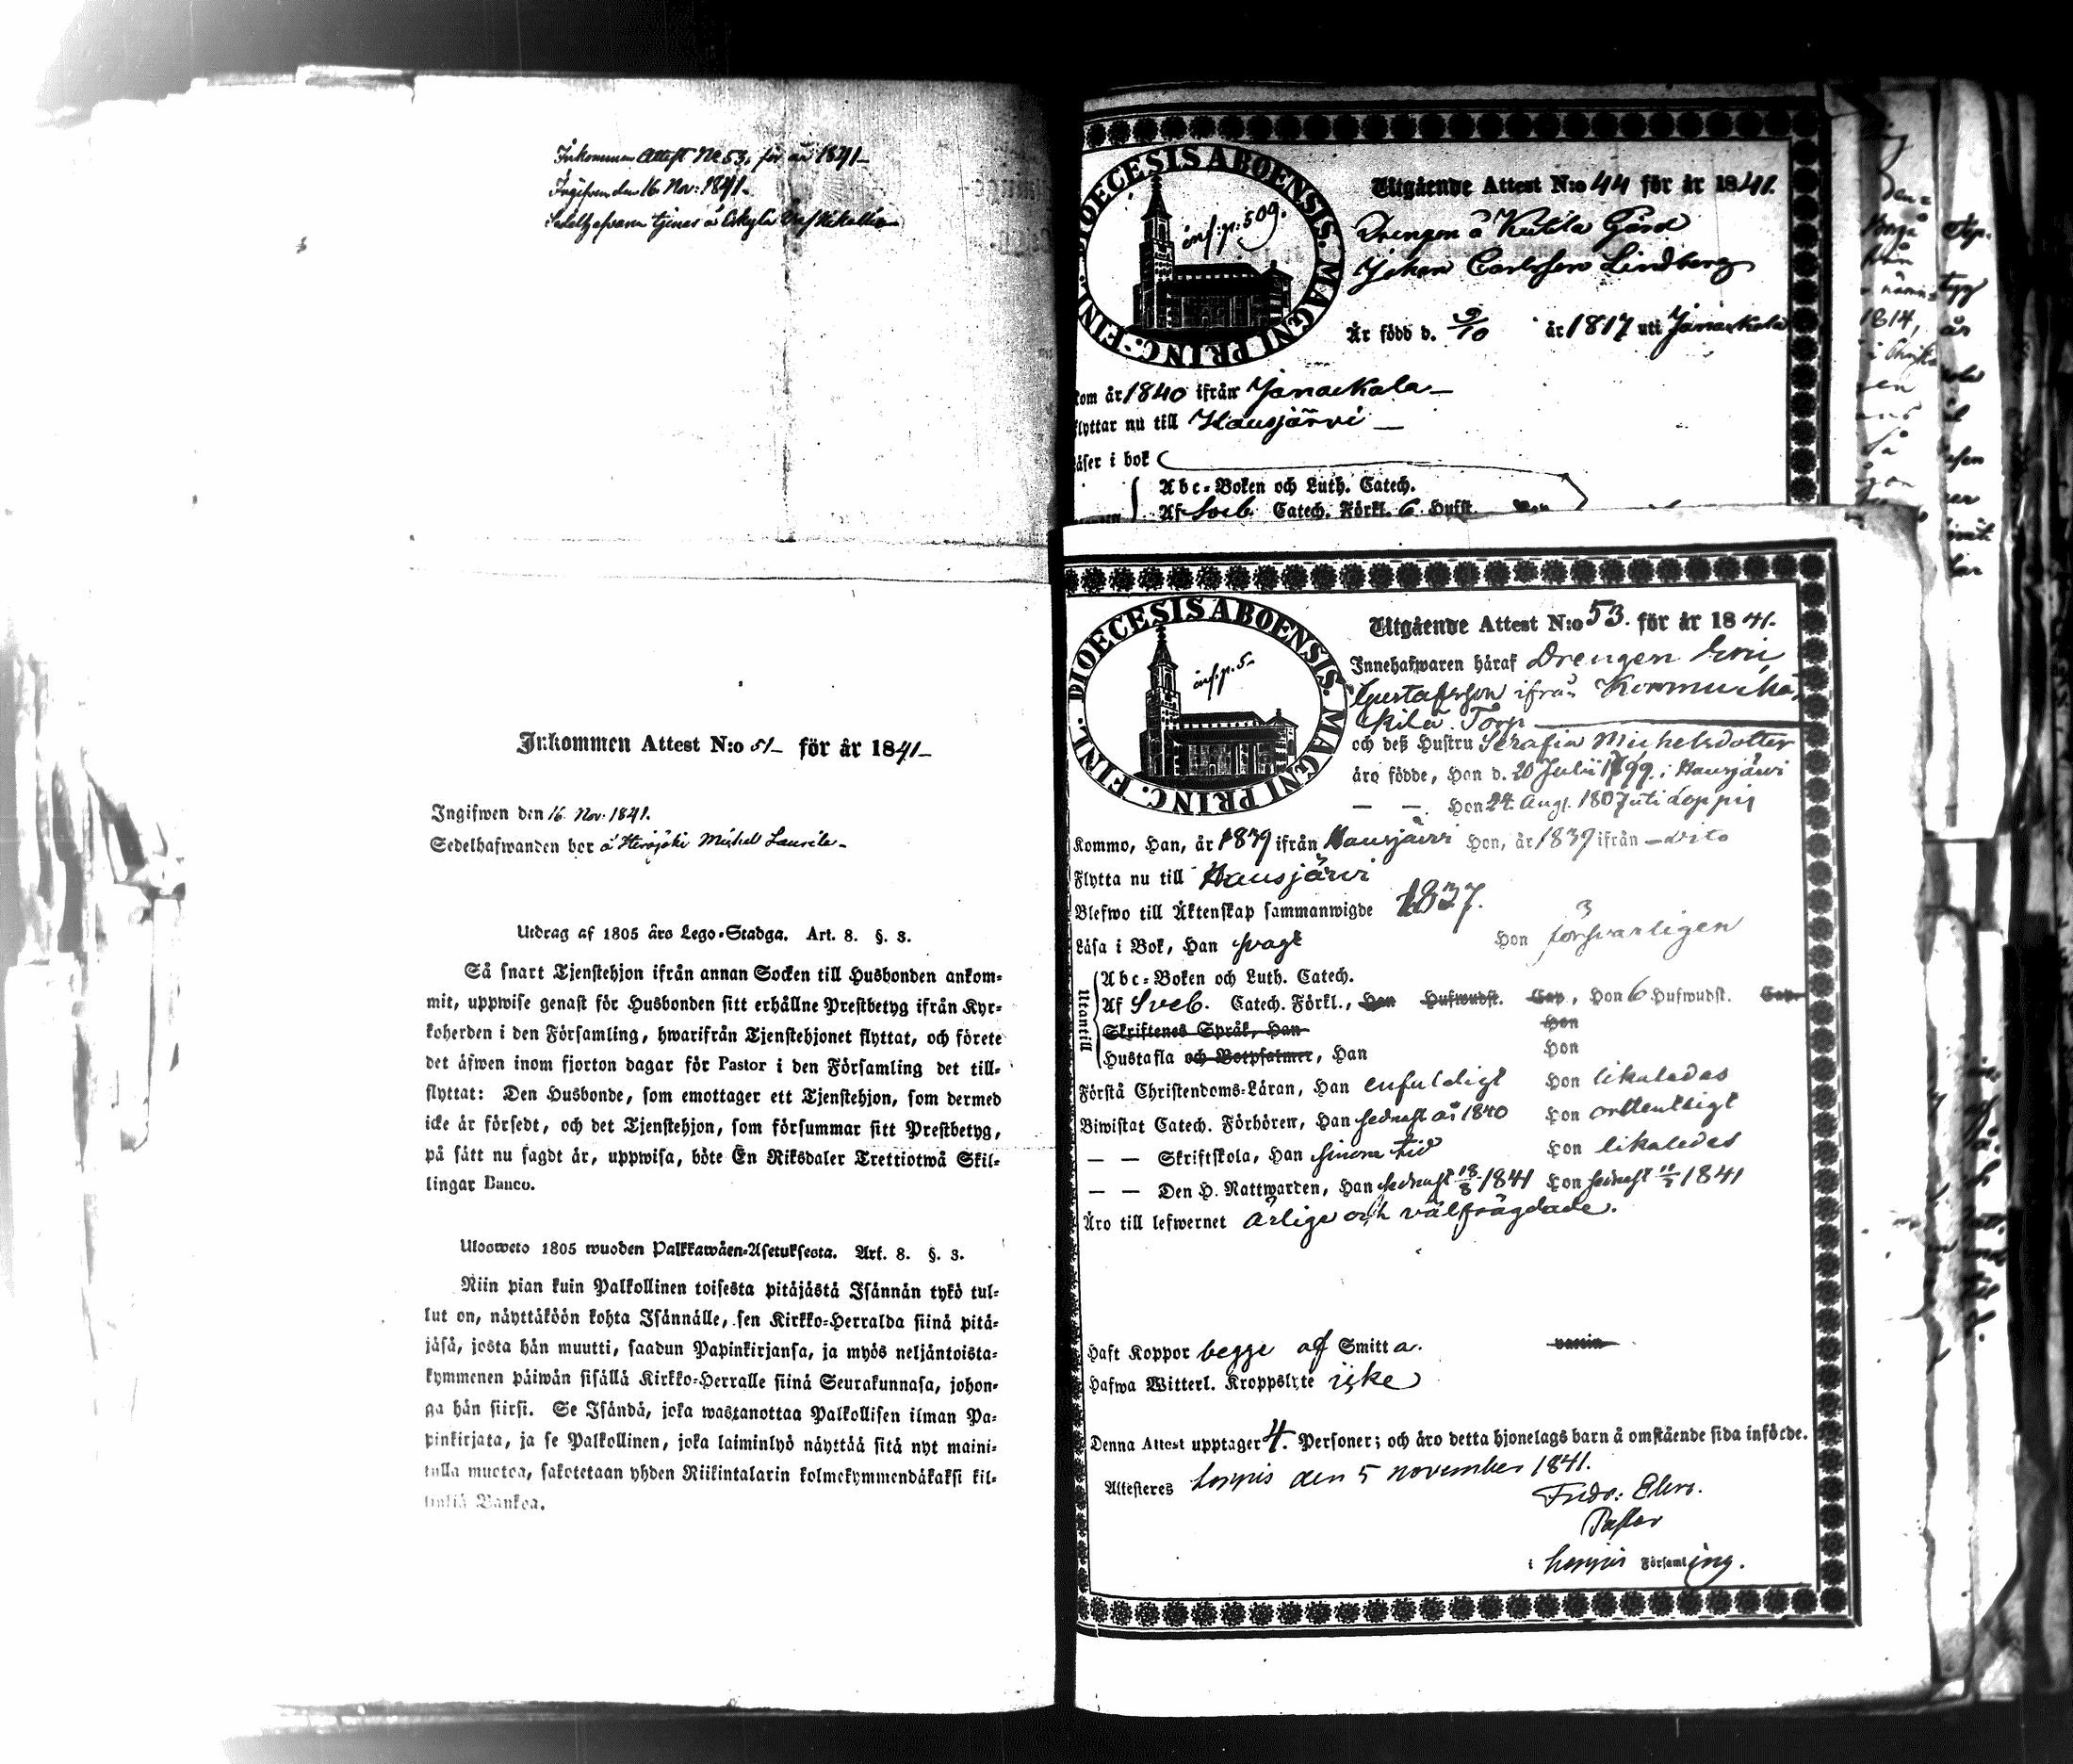 Inkommen Attest No 53, för år 1841
Ingifven den 16 Nov: 1841.
tjenar å
Inkommen Attest N:o 51 för år 1841
Ingifwen den 16 Nov. 1841.
Sedelhafwanden bor å Herajoki Mickel Laurila
Utdrag af 1805 års Lego-Stadga. Art. 8. §. 3.
Så snart Tjenstehjon ifrån annan Socken till Husbonden ankom-
mit, uppwise genast för Husbonden sitt erhållne Prestbetyg ifrån Kyr-
koherden i den Församling, hwarifrån Tjenstehjonet flyttat, och förete
det äfwen inom fjorton dagar för Pastor i den Församling det till-
flyttat: Den Husbonde, som emottager ett Tjenstehjon, som dermed
icke är försedt, och det Tjenstehjon, som försummar sitt Prestbetyg,
på sätt nu sagdt är, uppwisa, böte En Riksdaler Trettiotwå Skil-
lingar Banco.
Ulosweto 1805 wuoden Palkkawäen-Asetuksesta. Art. 8. §. 3.
Niin pian kuin Palkollinen toisesta pitäjästä Isännän tykö tul-
lut on, näyttäköön kohta Isännälle, sen Kirkko-Herralda siinä pitä-
jäsä, josta hän muutti, saadun Papinkirjansa, ja myös neljäntoista-
kymmenen päiwän sisällä Kirkko-Herralle siinä Seurakunnasa, johon-
ga hän siirsi. Se Isändä, joka wastanottaa Palkollisen ilman Pa-
pinkirjata, ja se Palkollinen, joka laiminlyö näyttää sitä nyt maini-
tulla muotoa, sakotetaan yhden Riikintalarin kolmekymmendäkaksi kil-
linkiä Bankoa.
DIOECESIS ABOENSIS. MAGNI PRINC. FINL.
inf: p: 509.
Utgående Attest N:o 44 för år 1841.
Drengen å Kulla Gård
Johan Carlsson Lindberg
Är född d. 9/10 år 1817 uti Janackala
kom år 1840 ifrån Janackala
flyttar nu till Hausjärvi
läser i bok
Abc-Boken och Luth. Catech.
Af Sveb. Catech. Förkl. 6 Hufst.
DIOECESIS ABOENSIS. MAGNI PRINC. FINL.
inf: p. 5
Utgående Attest N:o 53. för år 1841.
Innehafwaren häraf Drengen Eric
Gustafsson ifrån
Torp
och deß Hustru Serafia Michelsdotter
äro födde, Han d. 20 Julii 1799 i Hausjärvi
— — Hon 24 Augl. 1807 uti Loppis
Kommo, Han, år 1839 ifrån Hausjärvi Hon, år 1839 ifrån dito
Flytta nu till Hausjärvi
Blefwo till Äktenskap sammanwigde 1837.
Läsa i Bok, Han svagt Hon försvarligen
Utantill
Abc-Boken och Luth. Catech.
Af Sveb. Catech. Förkl., Han Hufwudst. Cap, Hon 6 Hufwudst. Cap.
Skriftenes Språk, Han Hon
Hustafla och Botpsalmer, Han Hon
Förstå Christendoms-Läran, Han enfaldigt Hon likaledes
Biwistat Catech. Förhören, Han sednast år 1840 Hon ordtentligt
— — Skriftskola, Han sinom tid Hon likaledes
— — Den H. Nattwarden, Han sednast 18/8 1841 Hon sednast 11/7 1841
Äro till lefwernet ärlige och välfrägdade.
Haft Koppor begge af Smitta. vaccin
Hafwa Witterl. Kroppslyte icke
Denna Attest upptager 4. Personer; och äro detta hjonelags barn å omstående sida införde.
Attesteres Loppis den 5 november 1841.
Fredr: Elers.
Pastor
i Loppis Församling.